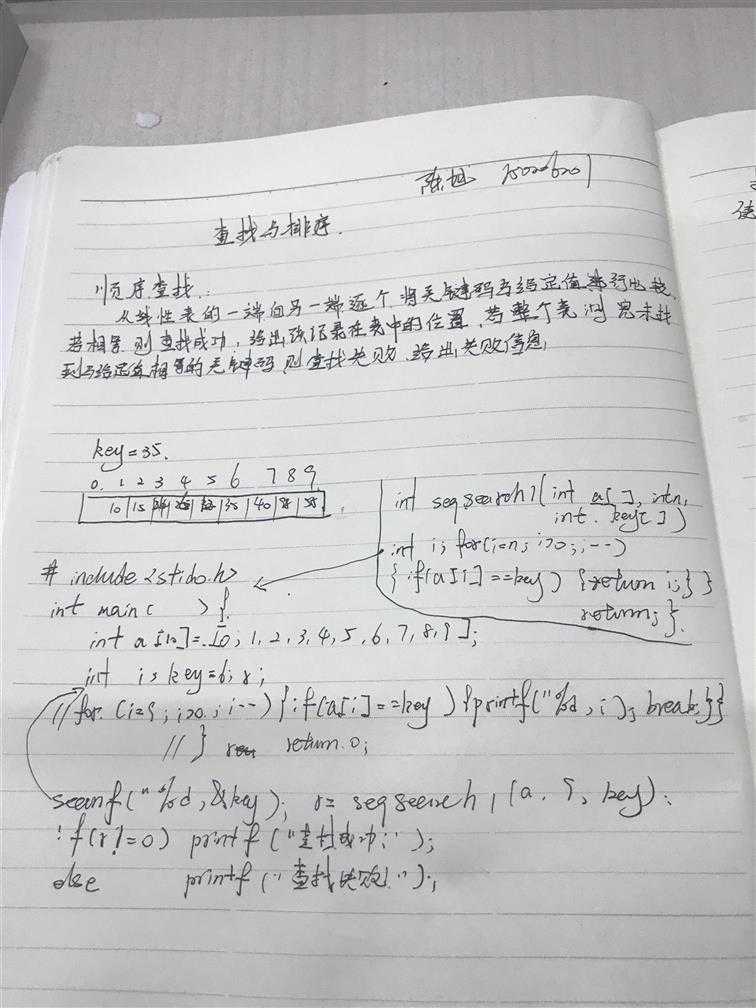 查找与排序.
顺序查找:
从线性表的一端向另一端逐个将关键码与给定值进行比较,
若相等则查找成功,给出该记录在表中的位置,若整个表检测完未找
到与给定值相等的关键码则查找失败.给出失败信息
key=35.
0. 1 2 3 4 5 6 7 8 9
10 15 35 40
int seqsearch1(int a[], int n,
int. key[])
int i; for(i=n; i>0; i--)
{ if(a[i]==key) {return i;}}
return; }.
# include <stido.h>
int main( ) {
int a[10]=[0; 1, 2, 3, 4, 5, 6, 7, 8, 9];
int i, key=6; r;
// for. (i=9; i>0; i--) {if(a[i]==key) {printf("%d, i); break;}}
// } return.0;
scanf("%d, &key); r= seqseerch1(a, 9, key);
if(r!=0) printf("查找成功!");
else printf("查找失败!");